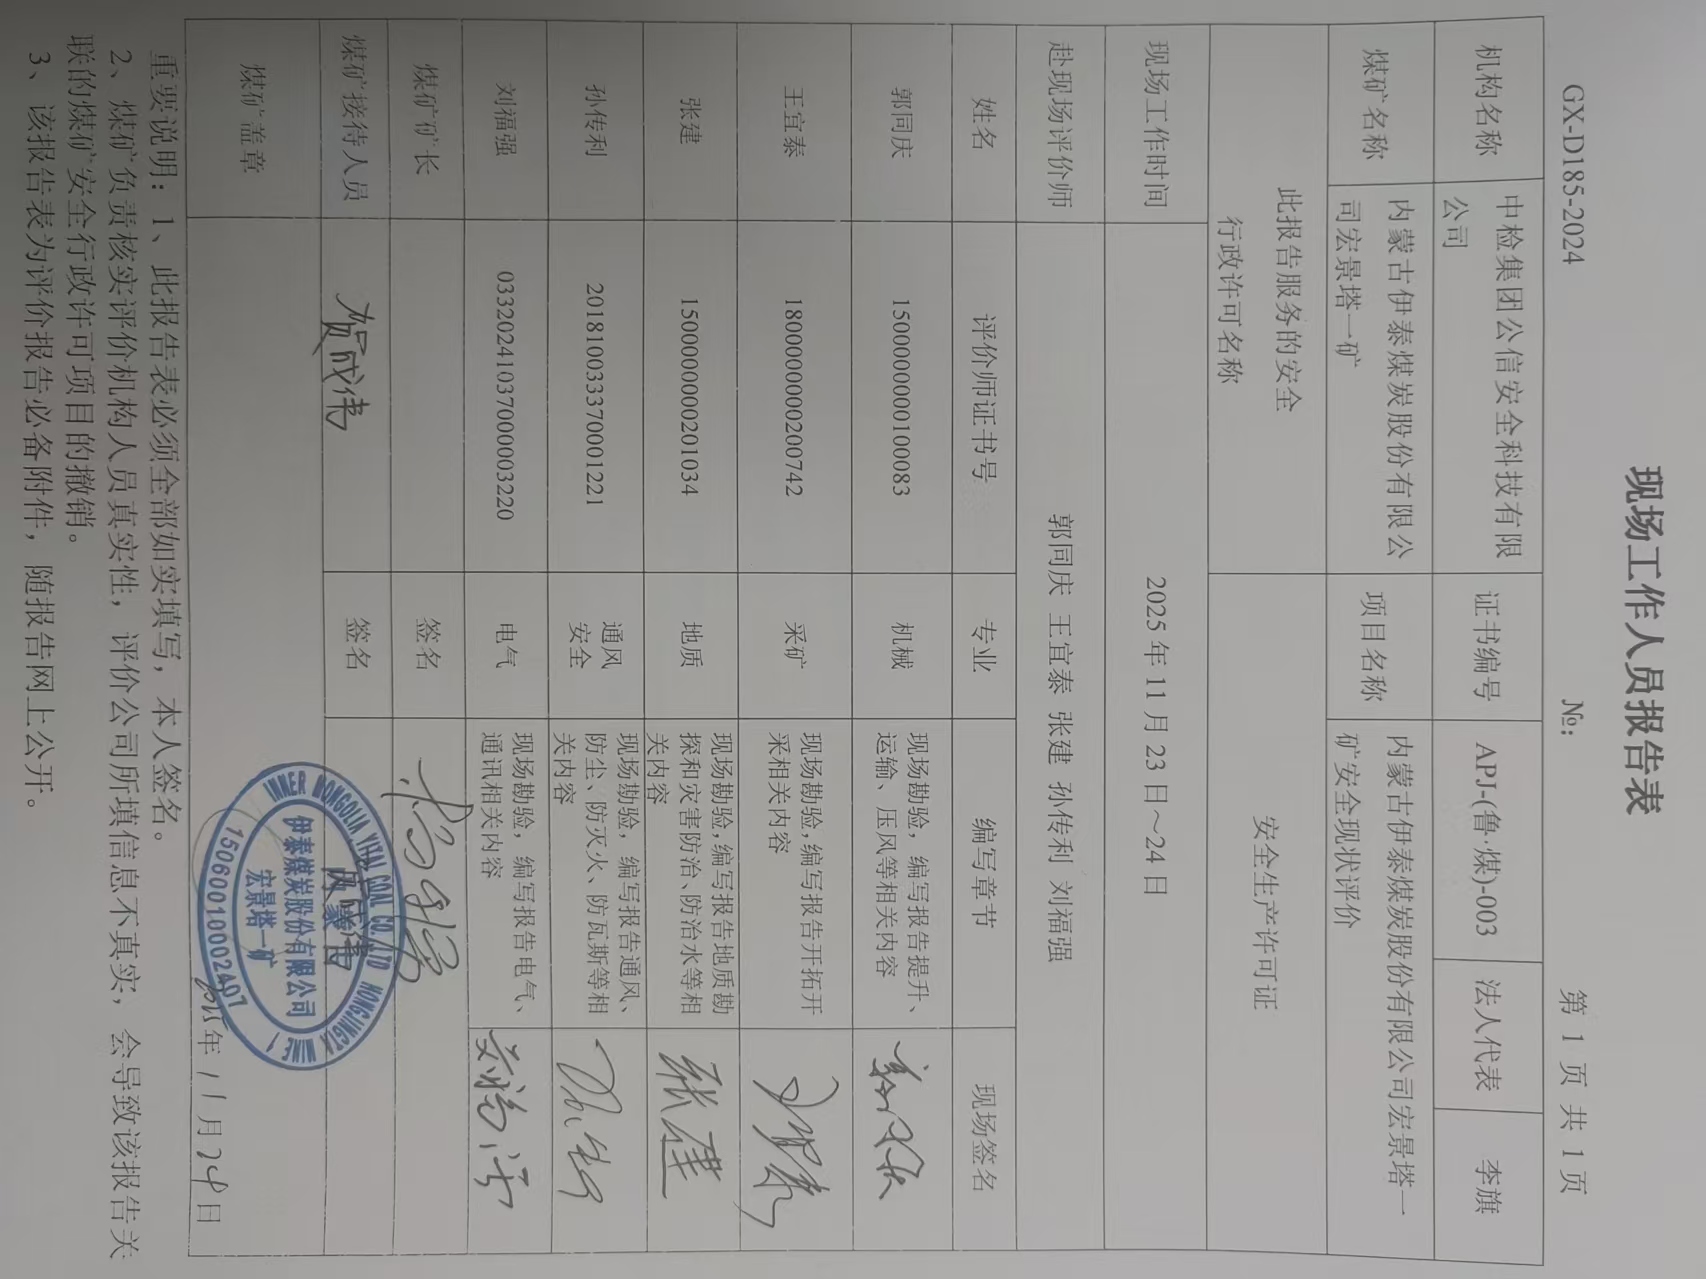 现场工作人员报告表
GX-D185-2024 №: 第 1 页 共 1 页
机构名称 中检集团公信安全科技有限公司 证书编号 APJ-(鲁·煤)-003 法人代表 李旗
煤矿名称 内蒙古伊泰煤炭股份有限公司宏景塔一矿 项目名称 内蒙古伊泰煤炭股份有限公司宏景塔一矿安全现状评价
此报告服务的安全行政许可名称 安全生产许可证
现场工作时间 2025 年 11 月 23 日～24 日
赴现场评价师 郭同庆 王宜泰 张建 孙传利 刘福强
姓名 评价师证书号 专业 编写章节 现场签名
郭同庆 1500000000100083 机械 现场勘验，编写报告提升、运输、压风等相关内容
王宜泰 1800000000200742 采矿 现场勘验,编写报告开拓开采相关内容
张建 1500000000201034 地质 现场勘验,编写报告地质勘探和灾害防治、防治水等相关内容 张建
孙传利 201810033370001221 通风安全 现场勘验，编写报告通风、防尘、防灭火、防瓦斯等相关内容
刘福强 03320241037000003220 电气 现场勘验，编写报告电气、通讯相关内容
煤矿矿长 签名
煤矿接待人员 贺成伟 签名
煤矿盖章
INNER MONGOLIA YITAI COAL CO.,LTD HONGJINGTA MINE 1
内蒙古
伊泰煤炭股份有限公司
宏景塔一矿
15060010002407
2025年 11月 24日
重要说明：1、此报告表必须全部如实填写，本人签名。
2、煤矿负责核实评价机构人员真实性，评价公司所填信息不真实，会导致该报告关
联的煤矿安全行政许可项目的撤销。
3、该报告表为评价报告必备附件，随报告网上公开。